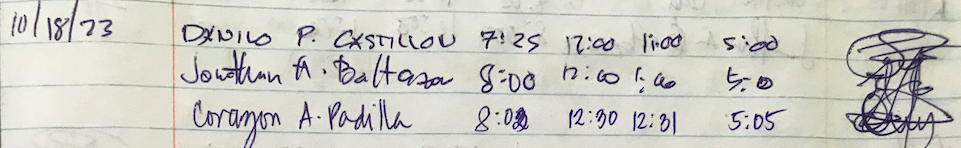 10/18/23 DANILO P. CASTILLON 7:25 12:00 1:00 5:00
Jonathan A. Baltazar 8:00 12:00 1:00 5:0
Corazon A. Padilla 8:02 12:30 12:31 5:05